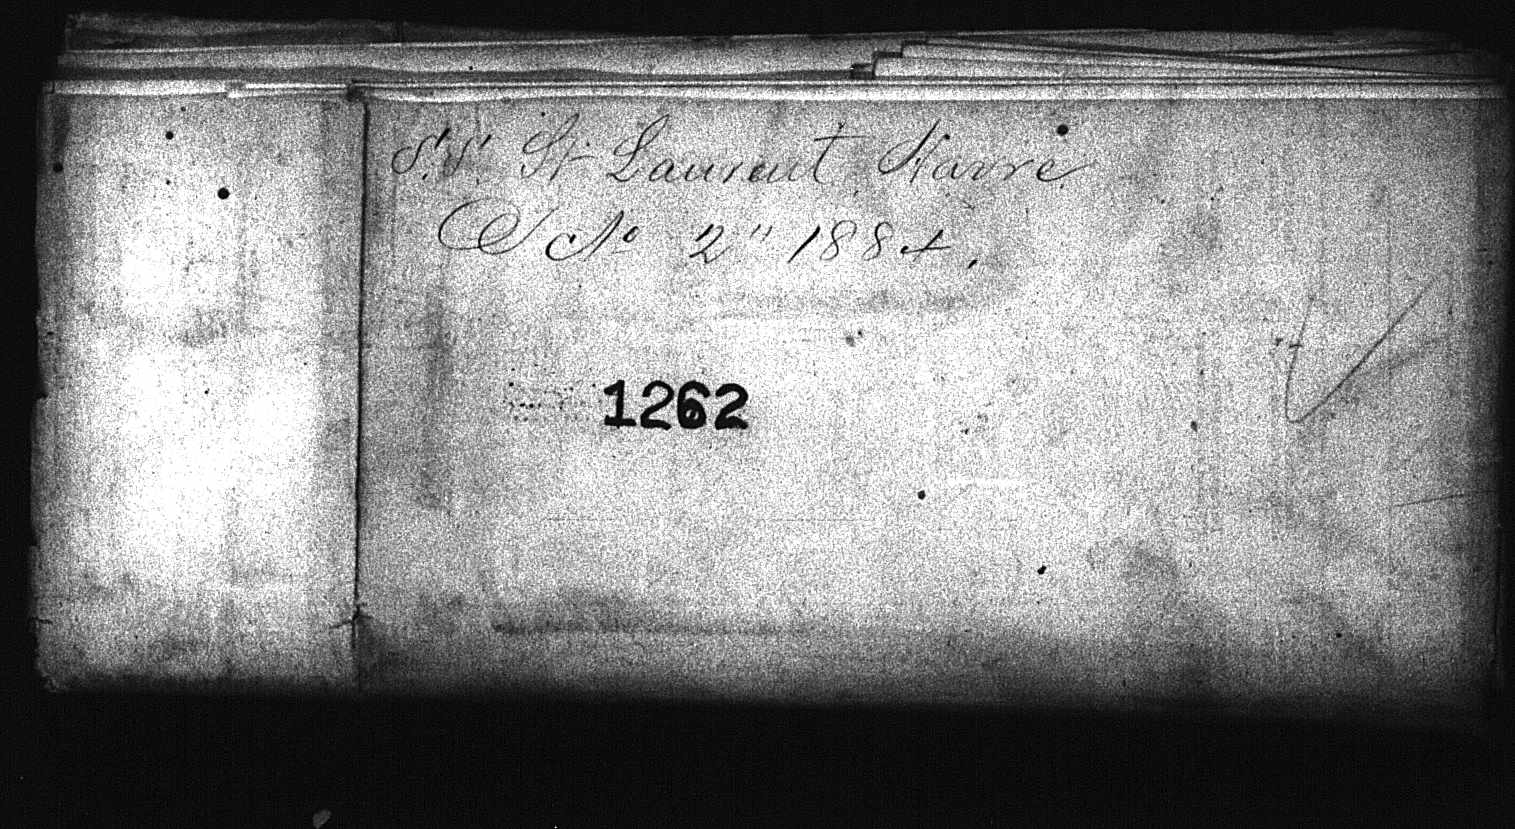 S.S. St Laurent Havre
No 2" 1884.
1262